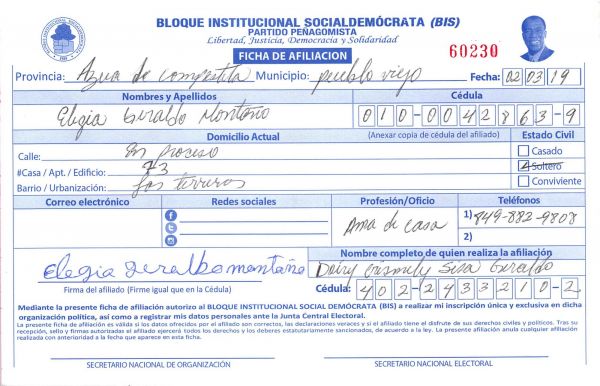 BLOQUE INSTITUCIONAL SOCIALDEMÓCRATA (BIS)
PARTIDO PEÑAGOMISTA
Libertad, Justicia, Democracia y Solidaridad
FICHA DE AFILIACION
60230
Provincia: Azua de compostela Municipio: pueblo viejo Fecha: 02 03 19
Nombres y Apellidos Cédula
Elegia Geraldo Montaño 010-0042863-9
Domicilio Actual (Anexar copia de cédula del afiliado) Estado Civil
Calle: En proceso Casado
#Casa / Apt. / Edificio: 73 Soltero
Barrio / Urbanización: Las terreras Conviviente
Correo electrónico Redes sociales Profesión/Oficio Teléfonos
Ama de casa 1) 849-882-9808
2)
Elegia Geraldo montaño
Nombre completo de quien realiza la afiliación
Sisa Geraldo
Firma del afiliado (Firme igual que en la Cédula) Cédula: 402-2433210-2
Mediante la presente ficha de afiliación autorizo al BLOQUE INSTITUCIONAL SOCIAL DEMÓCRATA (BIS) a realizar mi inscripción única y exclusiva en dicha
organización política, así como a registrar mis datos personales ante la Junta Central Electoral.
La presente ficha de afiliación es válida si los datos ofrecidos por el afiliado son correctos, las declaraciones veraces y si el afiliado tiene el disfrute de sus derechos civiles y políticos. Tras su
recepción, sello y firmas autorizadas el afiliado ejercerá todos los derechos y los deberes estatutariamente sancionados, de acuerdo a la ley. La presente afiliación anula cualquier afiliación
realizada con anterioridad a la fecha que aparece en esta ficha.
SECRETARIO NACIONAL DE ORGANIZACIÓN SECRETARIO NACIONAL ELECTORAL